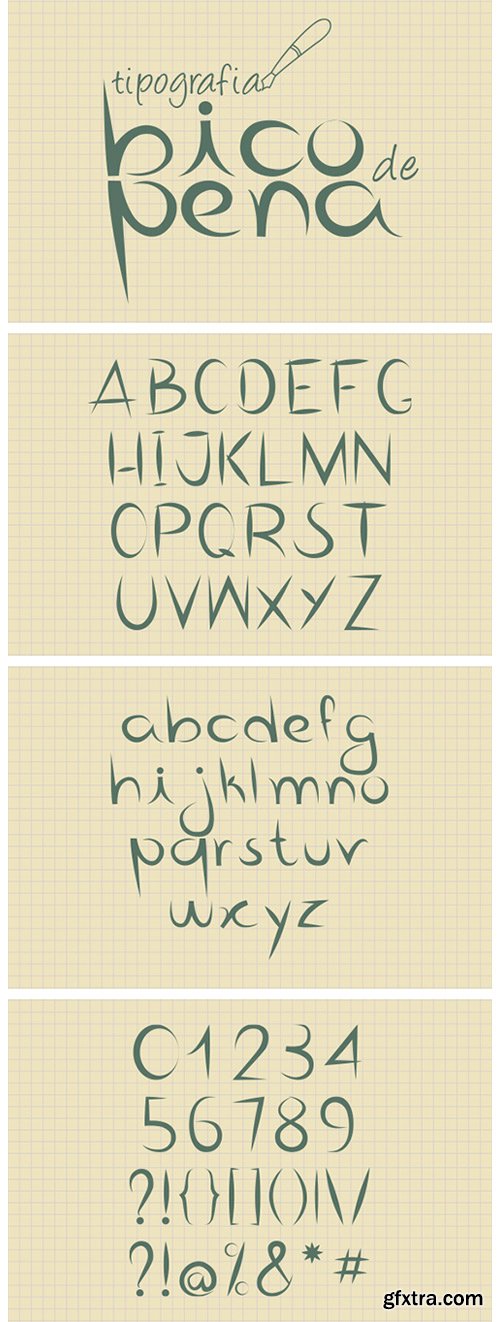 tipografia
bico
de
pena
ABCDEFG
HIJKLMN
OPQRST
UVWXYZ
abcdefg
hijklmno
pqrstuv
wxyz
01234
56789
?!{}[]()|\/
?!@%&*#
gfxtra.com